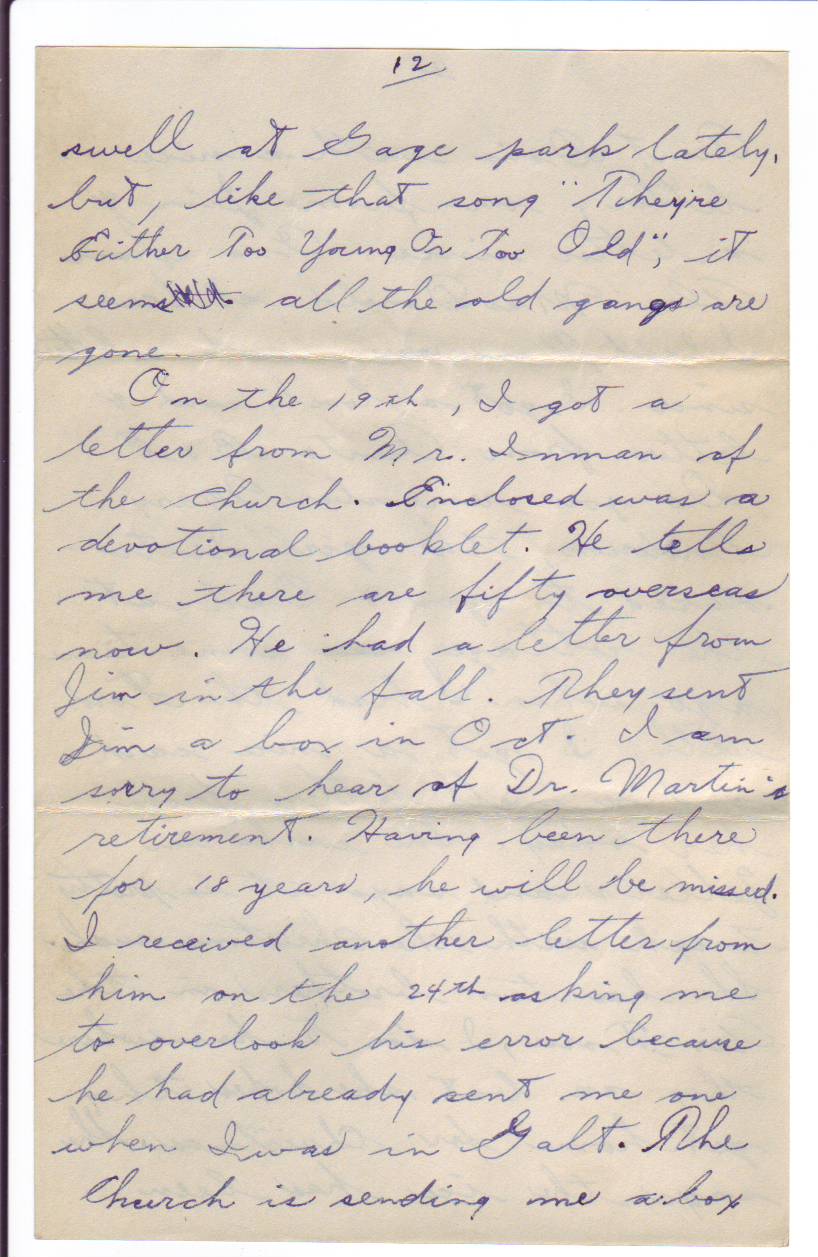 12
swell at Gage park lately,
but, like that song "They're
Either Too Young Or Too Old", it
seems all the old gangs are
gone.
On the 19th, I got a
letter from Mr. Inman of
the church. Enclosed was a
devotional booklet. He tells
me there are fifty overseas
now. He had a letter from
Jim in the fall. They sent
Jim a box in Oct. I am
sorry to hear of Dr. Martin's
retirement. Having been there
for 18 years, he will be missed.
I received another letter from
him on the 24th asking me
to overlook his error because
he had already sent me one
when I was in Galt. The
Church is sending me a box